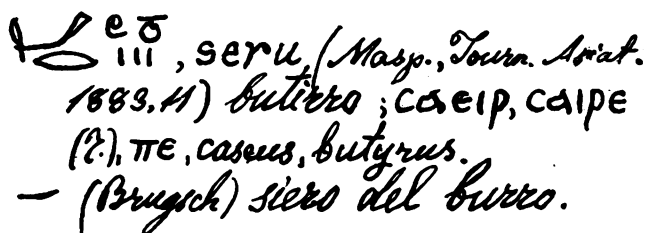 , seru, (Masp., Journ. Asiat.
1883, 11) butirro ; ⲥⲁⲉⲓⲣ, ⲥⲁⲓⲣⲉ
(?), ⲡⲉ, caseus, butyrus.
— (Brugsch) siero del burro.